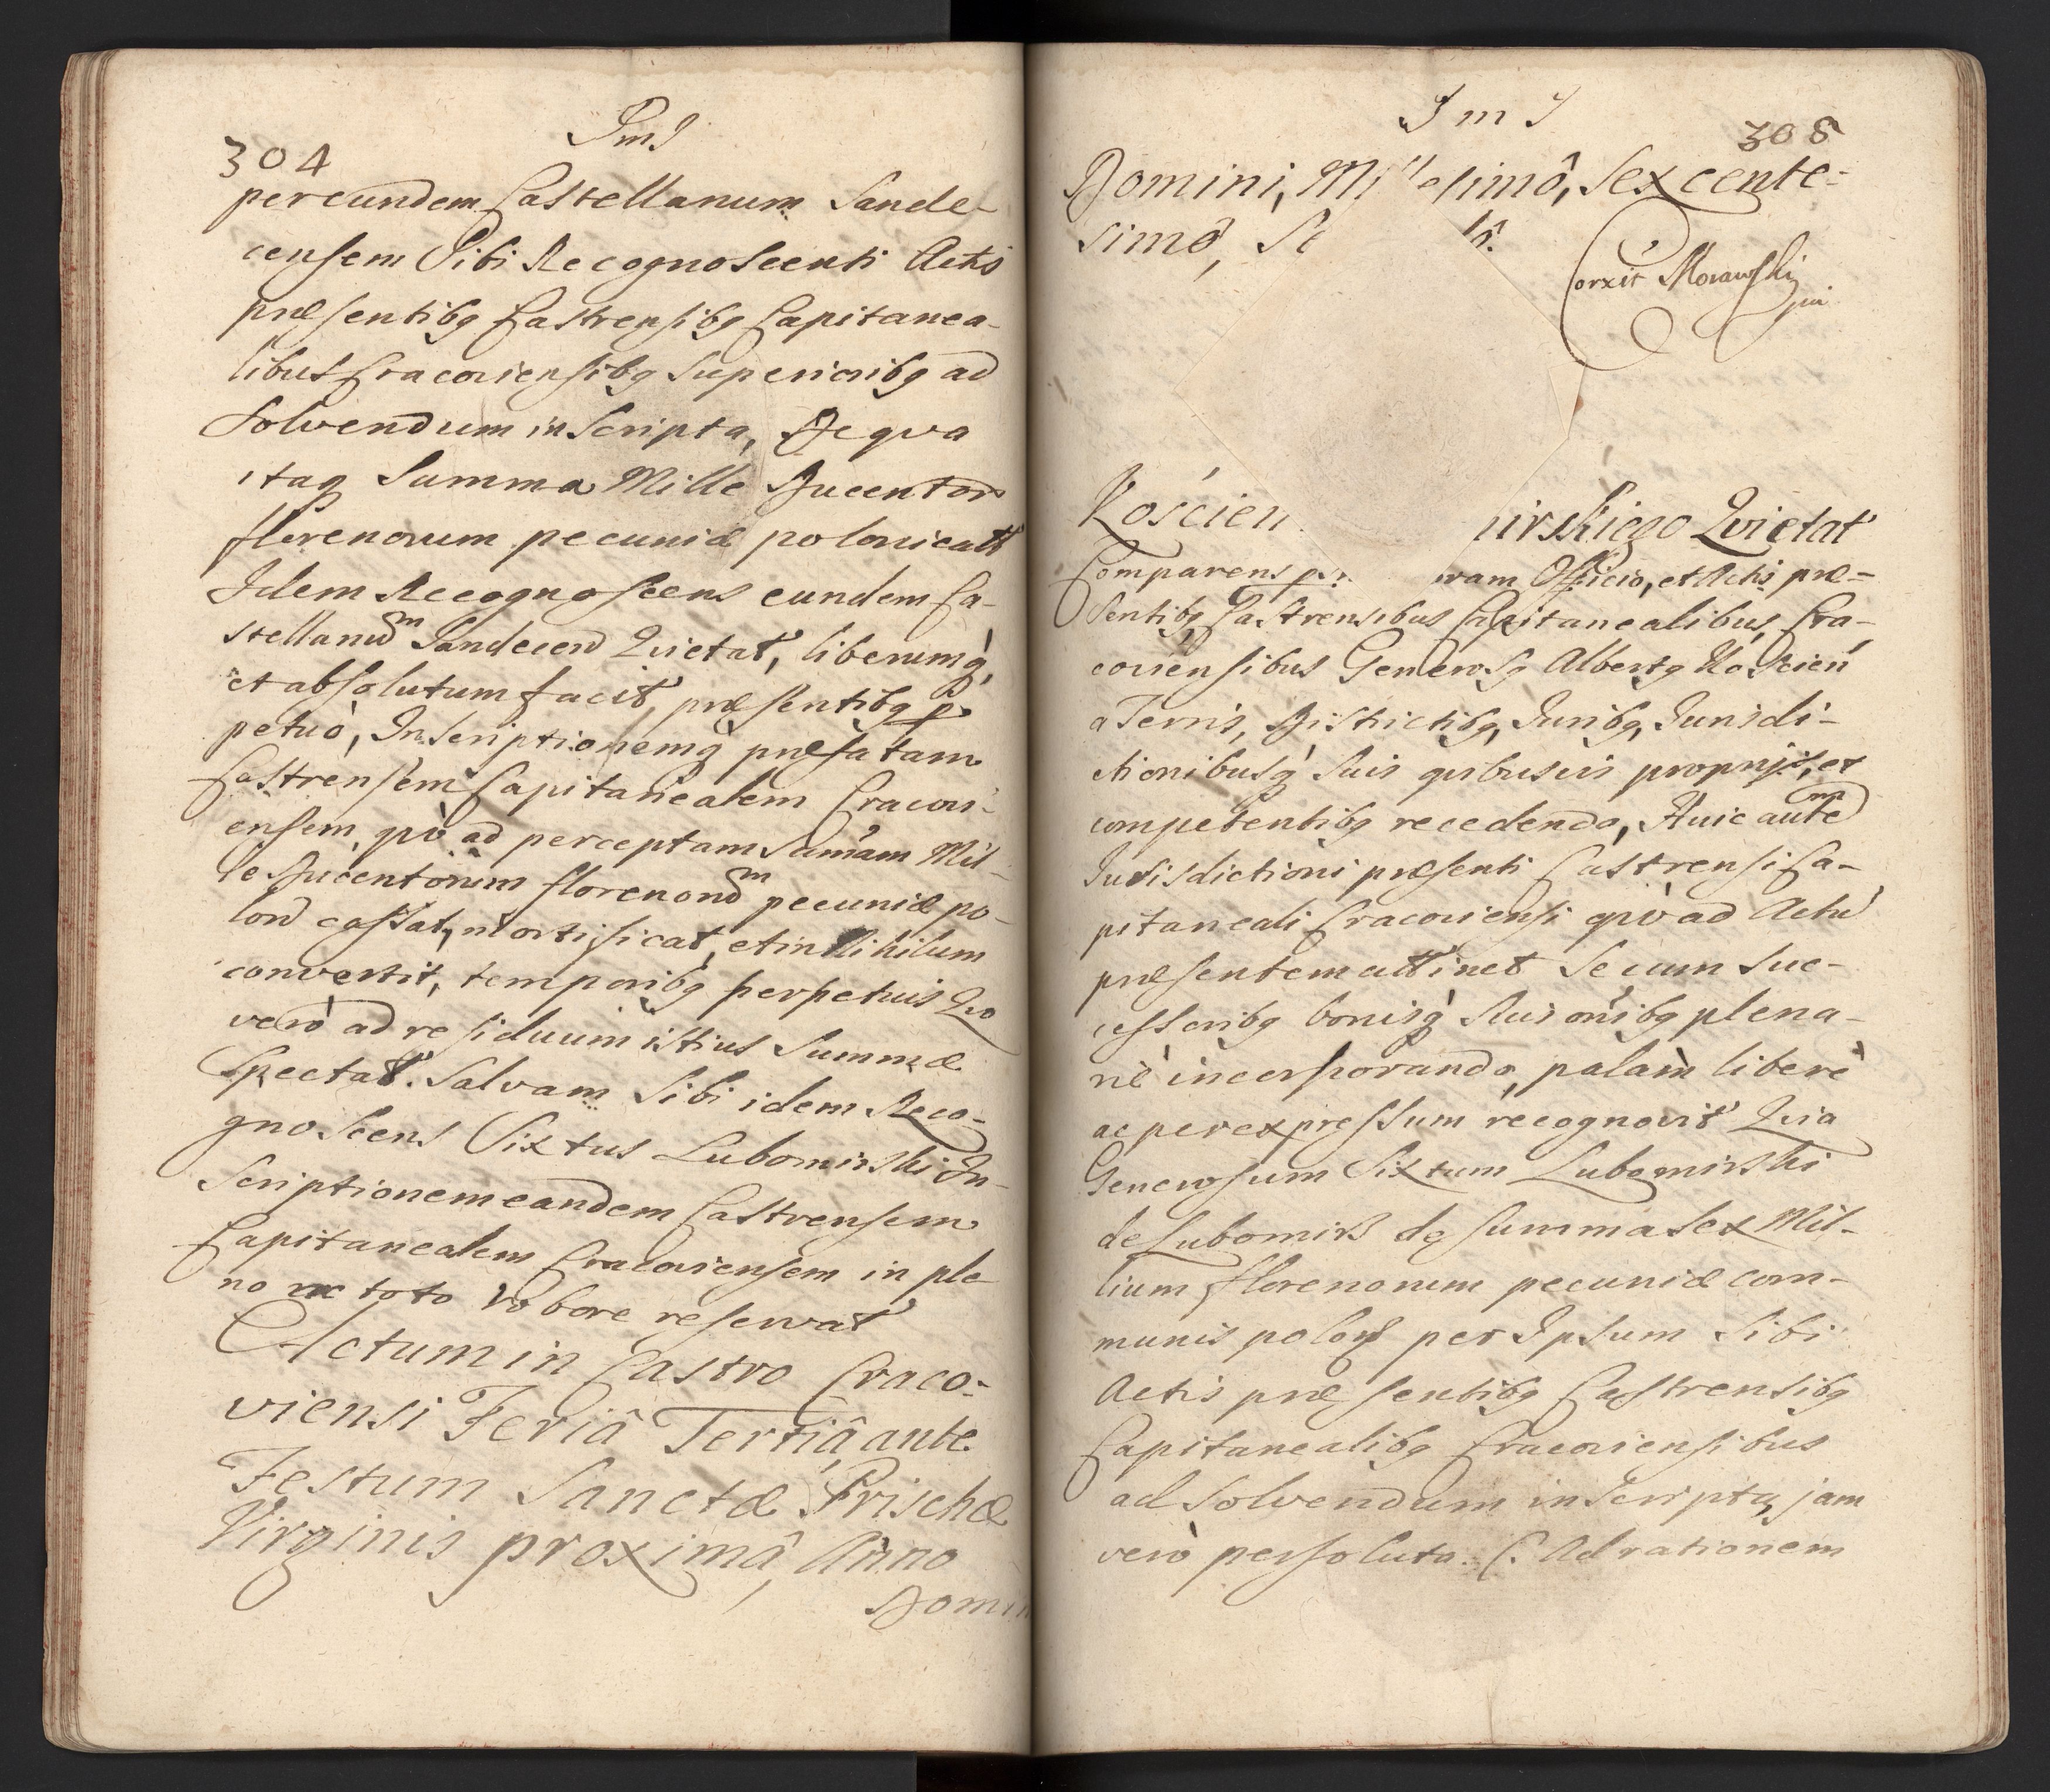 304
JmJ
per eundem Castellanum Sande-
censem Sibi Recognoscenti Actis
præsentibq Castrensibq Capitanea-
libus Cracoviensibq Superioribq ad
Solvendum inscripta, De qva
itaq Summa Mille Ducentor
florenorum pecuniæ polonicalt
Idem Recognoscens eundem Ca-
stellanum Sandecen Qvietat, liberumq,
et absolutum facit, præsentibq per
petuò, Inscriptionemq præfatam
Castrensem Capitanealem Cracovi-
ensem, qvò ad perceptam Summam Mil-
le Ducentorum florenorum pecuniæ po-
lon cassat, mortificat, et in Nihilum
convertit, temporibq perpetuis Qvo
verò ad residuum istius Summæ
Spectat. Salvam Sibi idem Reco-
gnoscens Sixtus Lubomirski In-
scriptionem eandem Castrensem
Capitanealem Cracoviensem in ple
no ac toto robore reservat
Actum in Castro Craco-
viensi Feriâ Tertiâ, ante
Festum Sanctæ Prischæ
Virginis proximâ, Anno
Domin
J m J
305
Domini, Mi esimô, Sexcente-
simô, Se tô.
Corxit Morawski
mp
Kościen irskiego Qvietat
Comparens per vam Officio, et Actis præ-
sentibq Castrensibus Capitanealibus Cra-
coviensibus Generosq Albertq Koscień
a Terris, Districtibq, Juribq, Jurisdi-
ctionibusq Suis qvibusvis proprijs, et
competentibq recedendo, Huic autem
Jurisdictioni præsenti Castrensi Ca-
pitaneali Cracoviensi qvò ad Actu
præsentem attinet Se cum Suc-
cessoribq bonisq Suis omibq plena-
riè incorporando, palàm liberè
ac per expressum recognovit Qvia
Generosum Sixtum Lubomirski
de Lubomirz de summa Sex Mil-
lium florenorum pecuniæ com-
munis polon per Ipsum Sibi
Actis præsentibq Castrensibq
Capitanealibq Cracoviensibus
ad Solvendum inscripta, jam
verò persoluta. (. Ad rationem